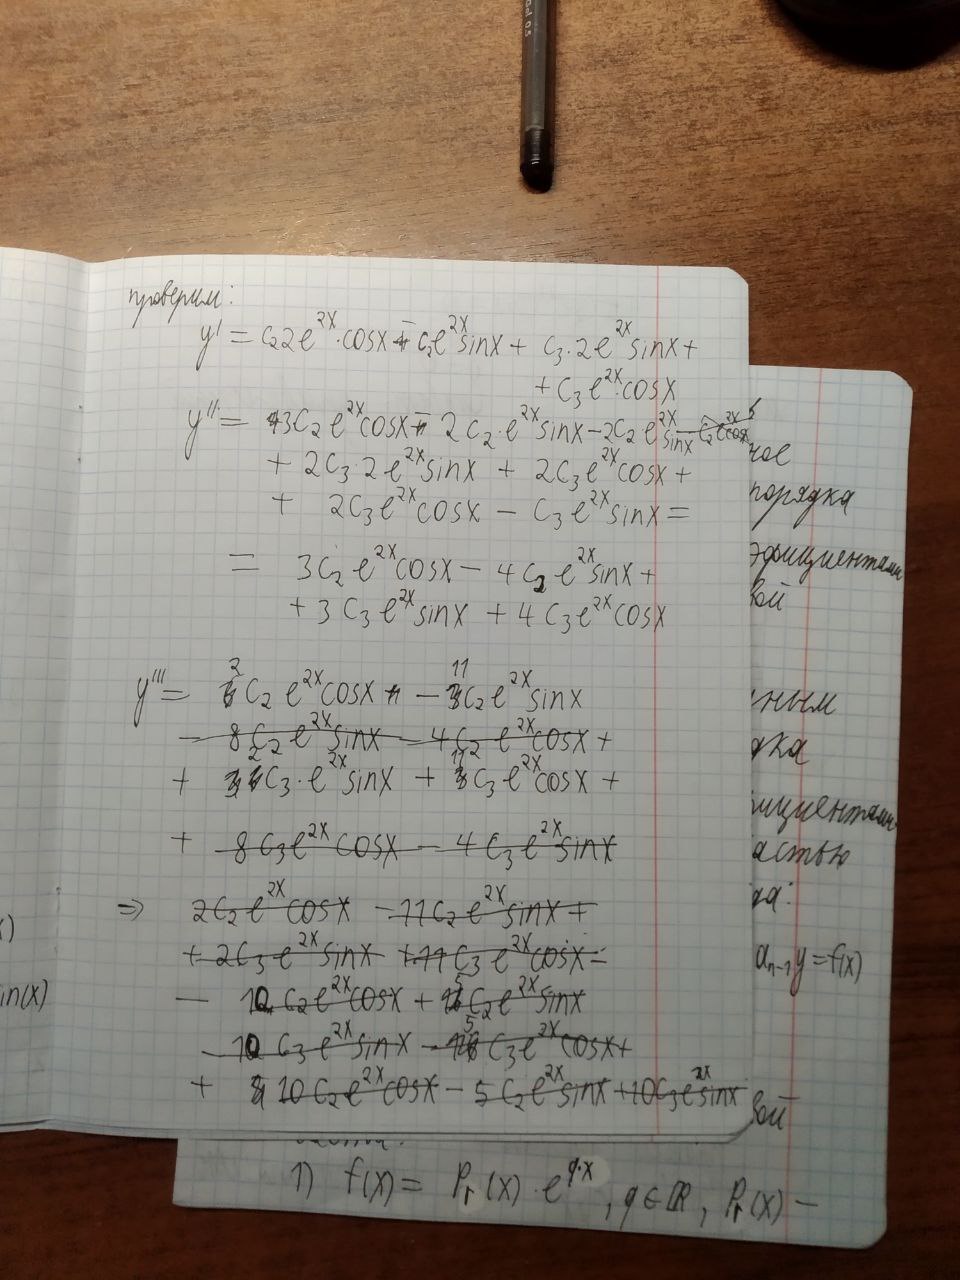 проверим:
y' = c₂2e^{2x}·cosx - c₂e^{2x}sinx + c₃·2e^{2x}sinx +
+ c₃e^{2x}·cosx
y'' = 3c₂e^{2x}cosx - 2c₂·e^{2x}sinx - 2c₂e^{2x}sinx - c₂e^{2x}cosx
+ 2c₃·2e^{2x}sinx + 2c₃e^{2x}cosx +
+ 2c₃e^{2x}cosx - c₃e^{2x}sinx =
= 3c₂e^{2x}cosx - 4c₂e^{2x}sinx +
+ 3c₃e^{2x}sinx + 4c₃e^{2x}cosx
y''' = 2c₂e^{2x}cosx - 11c₂e^{2x}sinx
- 8c₂e^{2x}sinx - 4c₂e^{2x}cosx +
+ 2c₃·e^{2x}sinx + 11c₃e^{2x}cosx +
+ 8c₃e^{2x}cosx - 4c₃e^{2x}sinx
⇒ 2c₂e^{2x}cosx - 11c₂e^{2x}sinx +
+ 2c₃e^{2x}sinx + 11c₃e^{2x}cosx =
- 12c₂e^{2x}cosx + 16c₂e^{2x}sinx
- 12c₃e^{2x}sinx - 16c₃e^{2x}cosx +
+ 10c₂e^{2x}cosx - 5c₂e^{2x}sinx + 10c₃e^{2x}sinx
ное
порядка
эффициентами
вой
ным
дка
ициентами
астью
да:
a_{n-1}y = f(x)
вой
x)
in(x)
1) f(x) = Pᵣ(x)·e^{q·x}, q∈ℝ, Pᵣ(x) —